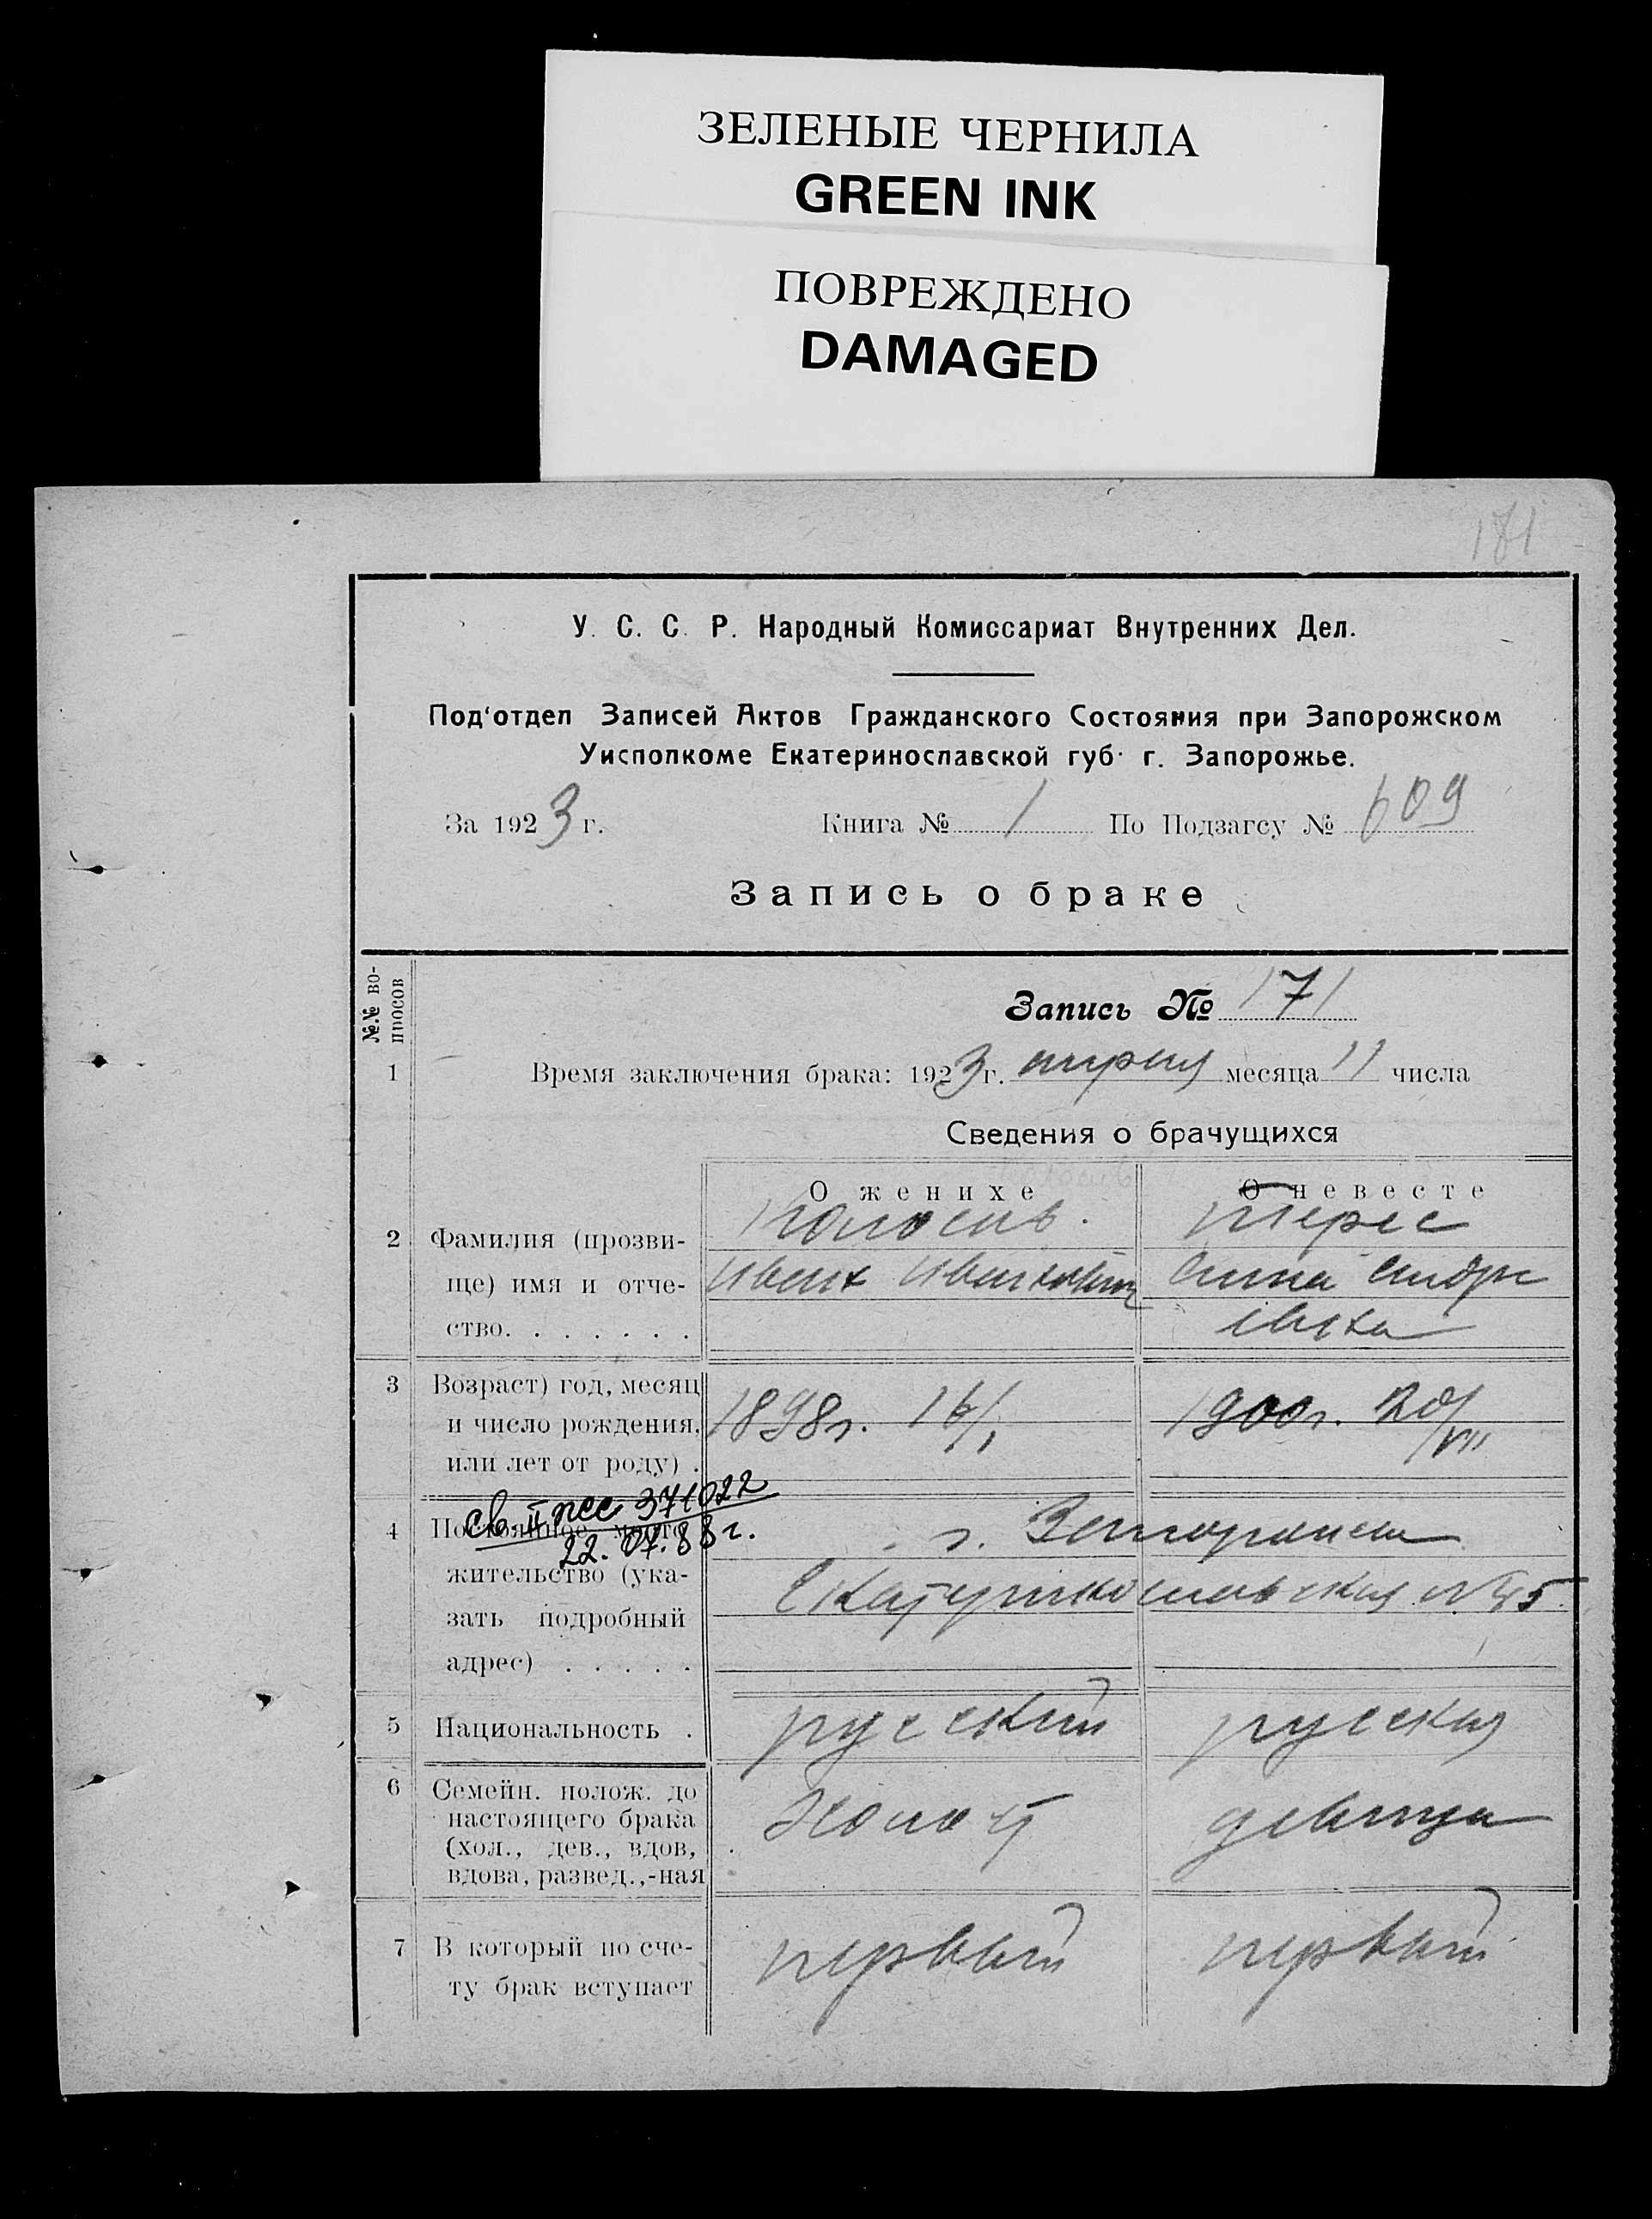 ЗЕЛЕНЫЕ ЧЕРНИЛА
GREEN INK
ПОВРЕЖДЕНО
DAMAGED
У. С. С. Р. Народный Комиссариат Внутренних Дел.
Под'отдел Записей Актов Гражданского Состояния при Запорожском
Уисполкоме Екатеринославской губ. г. Запорожье.
За 1923 г. Книга № 1 По Подзагсу № 609
Запись о браке
№.№ во-
просов
Запись № 171
1 Время заключения брака: 1923 г. апреля месяца 11 числа
Сведения о брачущихся
О женихе О невесте
2 Фамилия (прозви-
ще) имя и отче- Иван Иванович Анна Андре
ство. . . . . . . евна
3 Возраст) год, месяц
и число рождения, 1898г. 16/I 1900г. 20/VII
или лет от роду) .
св. II 371022
22. 07. 88 г.
4 Постоянное место г. Запорожье
жительство (ука- Екатеринославская № 45
зать подробный
адрес) . . . . .
5 Национальность . русский русская
6 Семейн. полож. до
настоящего брака холост девица
(хол., дев., вдов,
вдова, развед.,-ная
7 В который по сче- первый первый
ту брак вступает